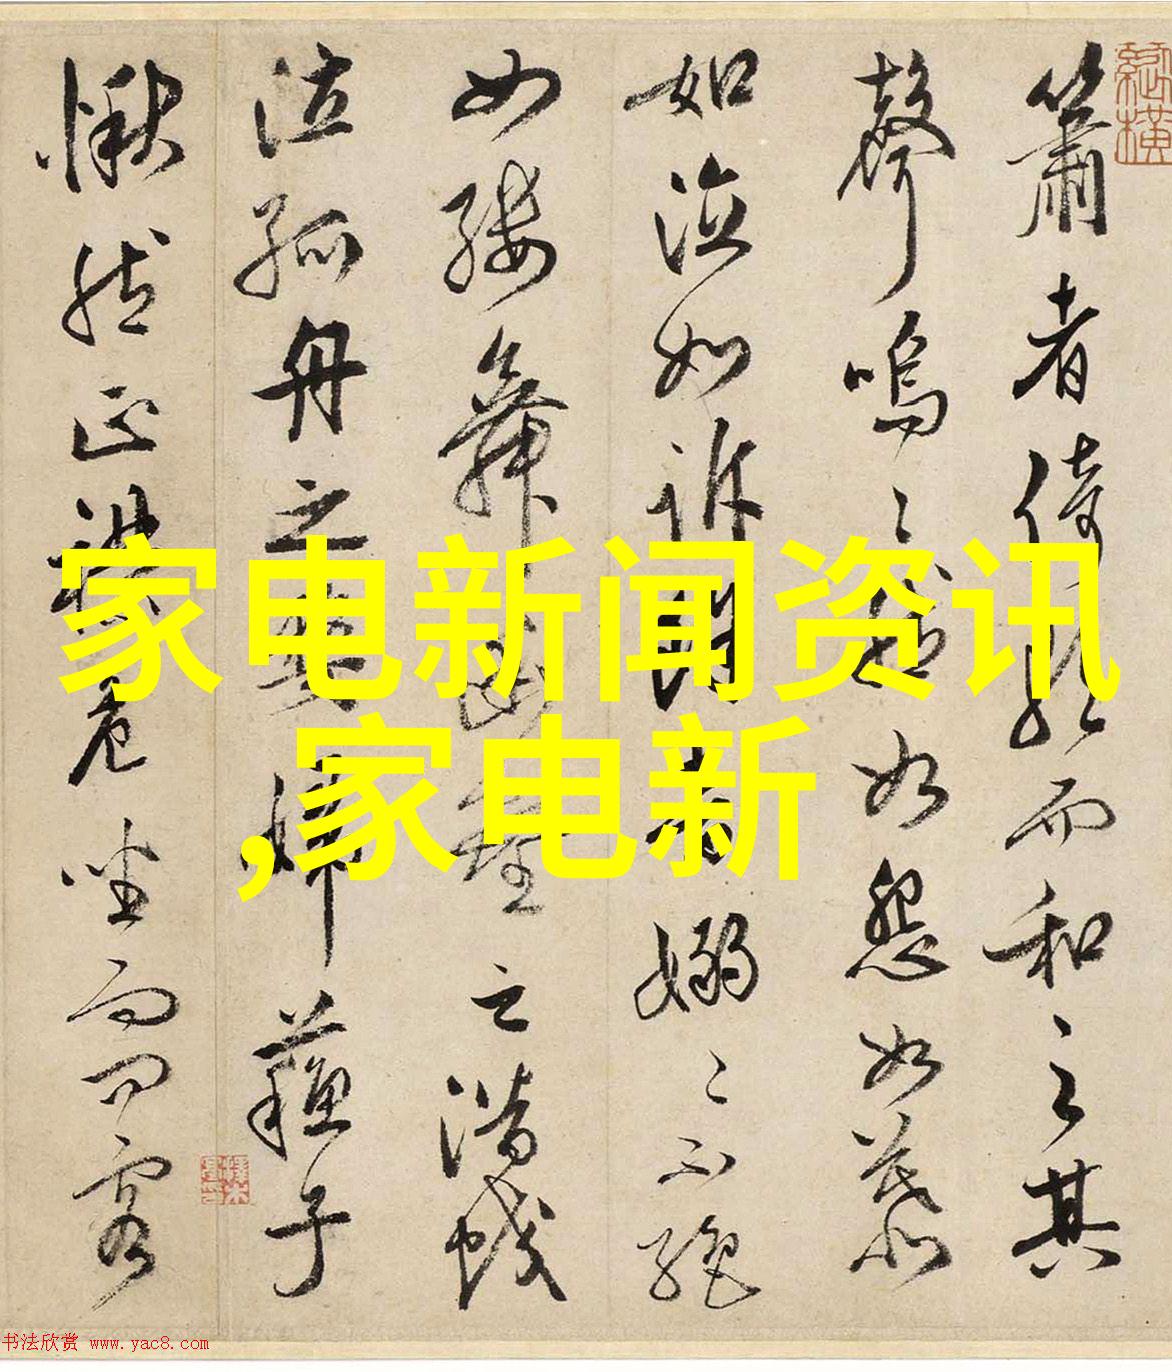 簫者倚歌而和之其
聲嗚々然如怨如慕
如泣如訴餘音嫋々不絕
如縷舞幽壑之潛蛟
泣孤舟之嫠婦蘇子
愀然正襟危坐而問客
家电新闻资讯
,家电新
书法欣赏 www.yac8.com